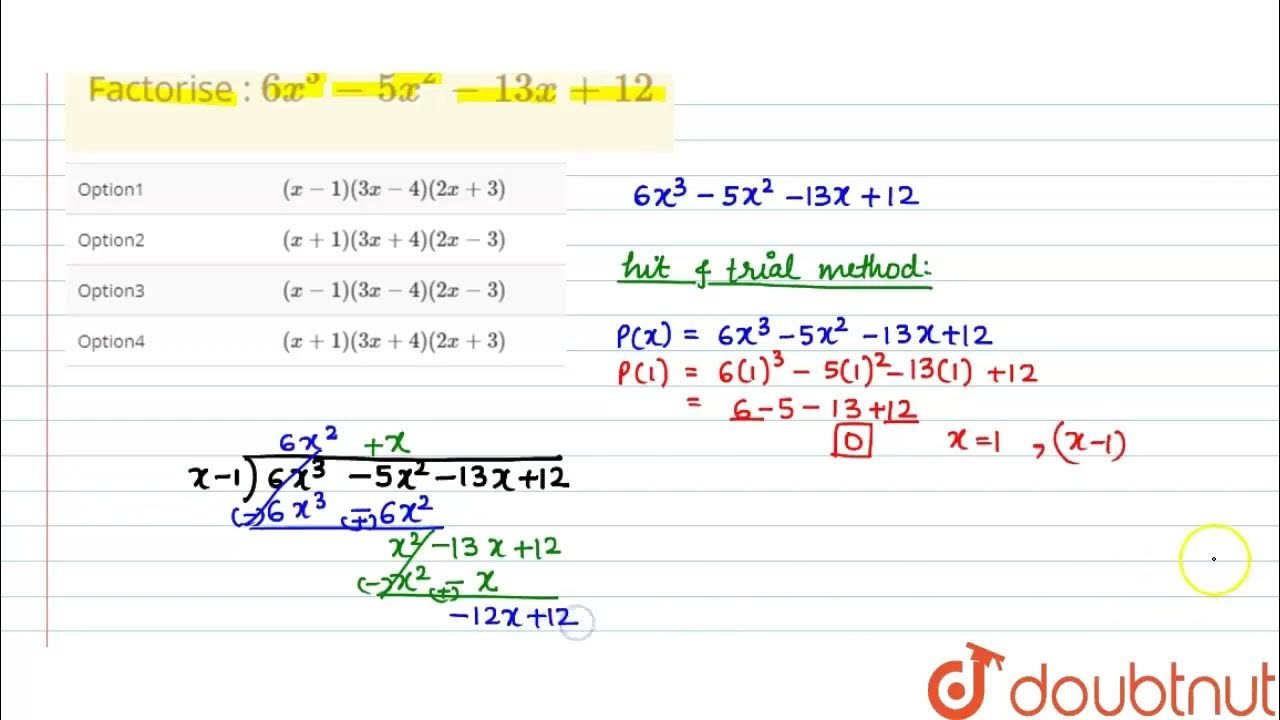 Factorise : 6x³ − 5x² − 13x + 12
Option1 (x − 1)(3x − 4)(2x + 3)
Option2 (x + 1)(3x + 4)(2x − 3)
Option3 (x − 1)(3x − 4)(2x − 3)
Option4 (x + 1)(3x + 4)(2x + 3)
6x³ − 5x² − 13x + 12
hit & trial method:
P(x) = 6x³ − 5x² − 13x + 12
P(1) = 6(1)³ − 5(1)² − 13(1) + 12
= 6 − 5 − 13 + 12
0 x = 1 , (x − 1)
6x² + x
x − 1 ) 6x³ − 5x² − 13x + 12
(−) 6x³ (+) − 6x²
x² − 13x + 12
(−) x² (+) − x
− 12x + 12
doubtnut